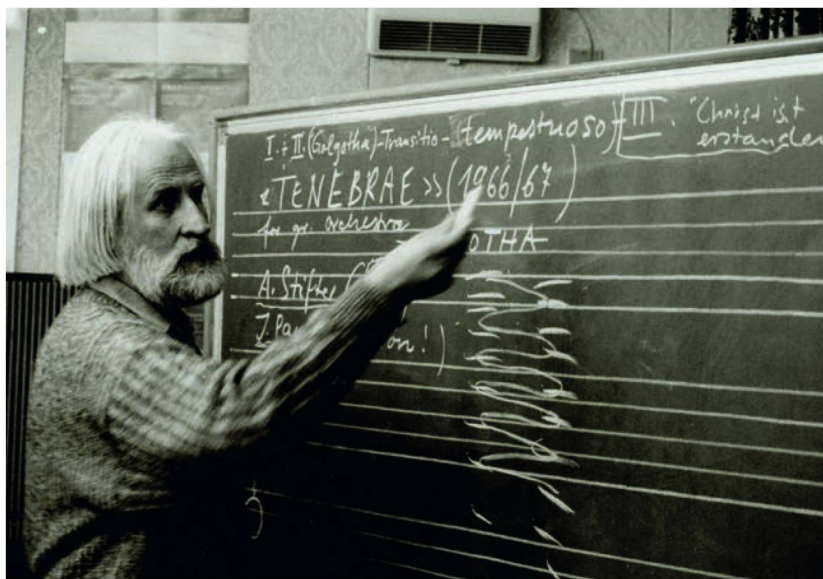 I. + II. (Golgotha)-Transitio-(tempestuoso)
III. "Christ ist
erstanden
« TENEBRAE » (1966/67)
for gr. Orchestra
OTHA
A. Stifter
J. on!)